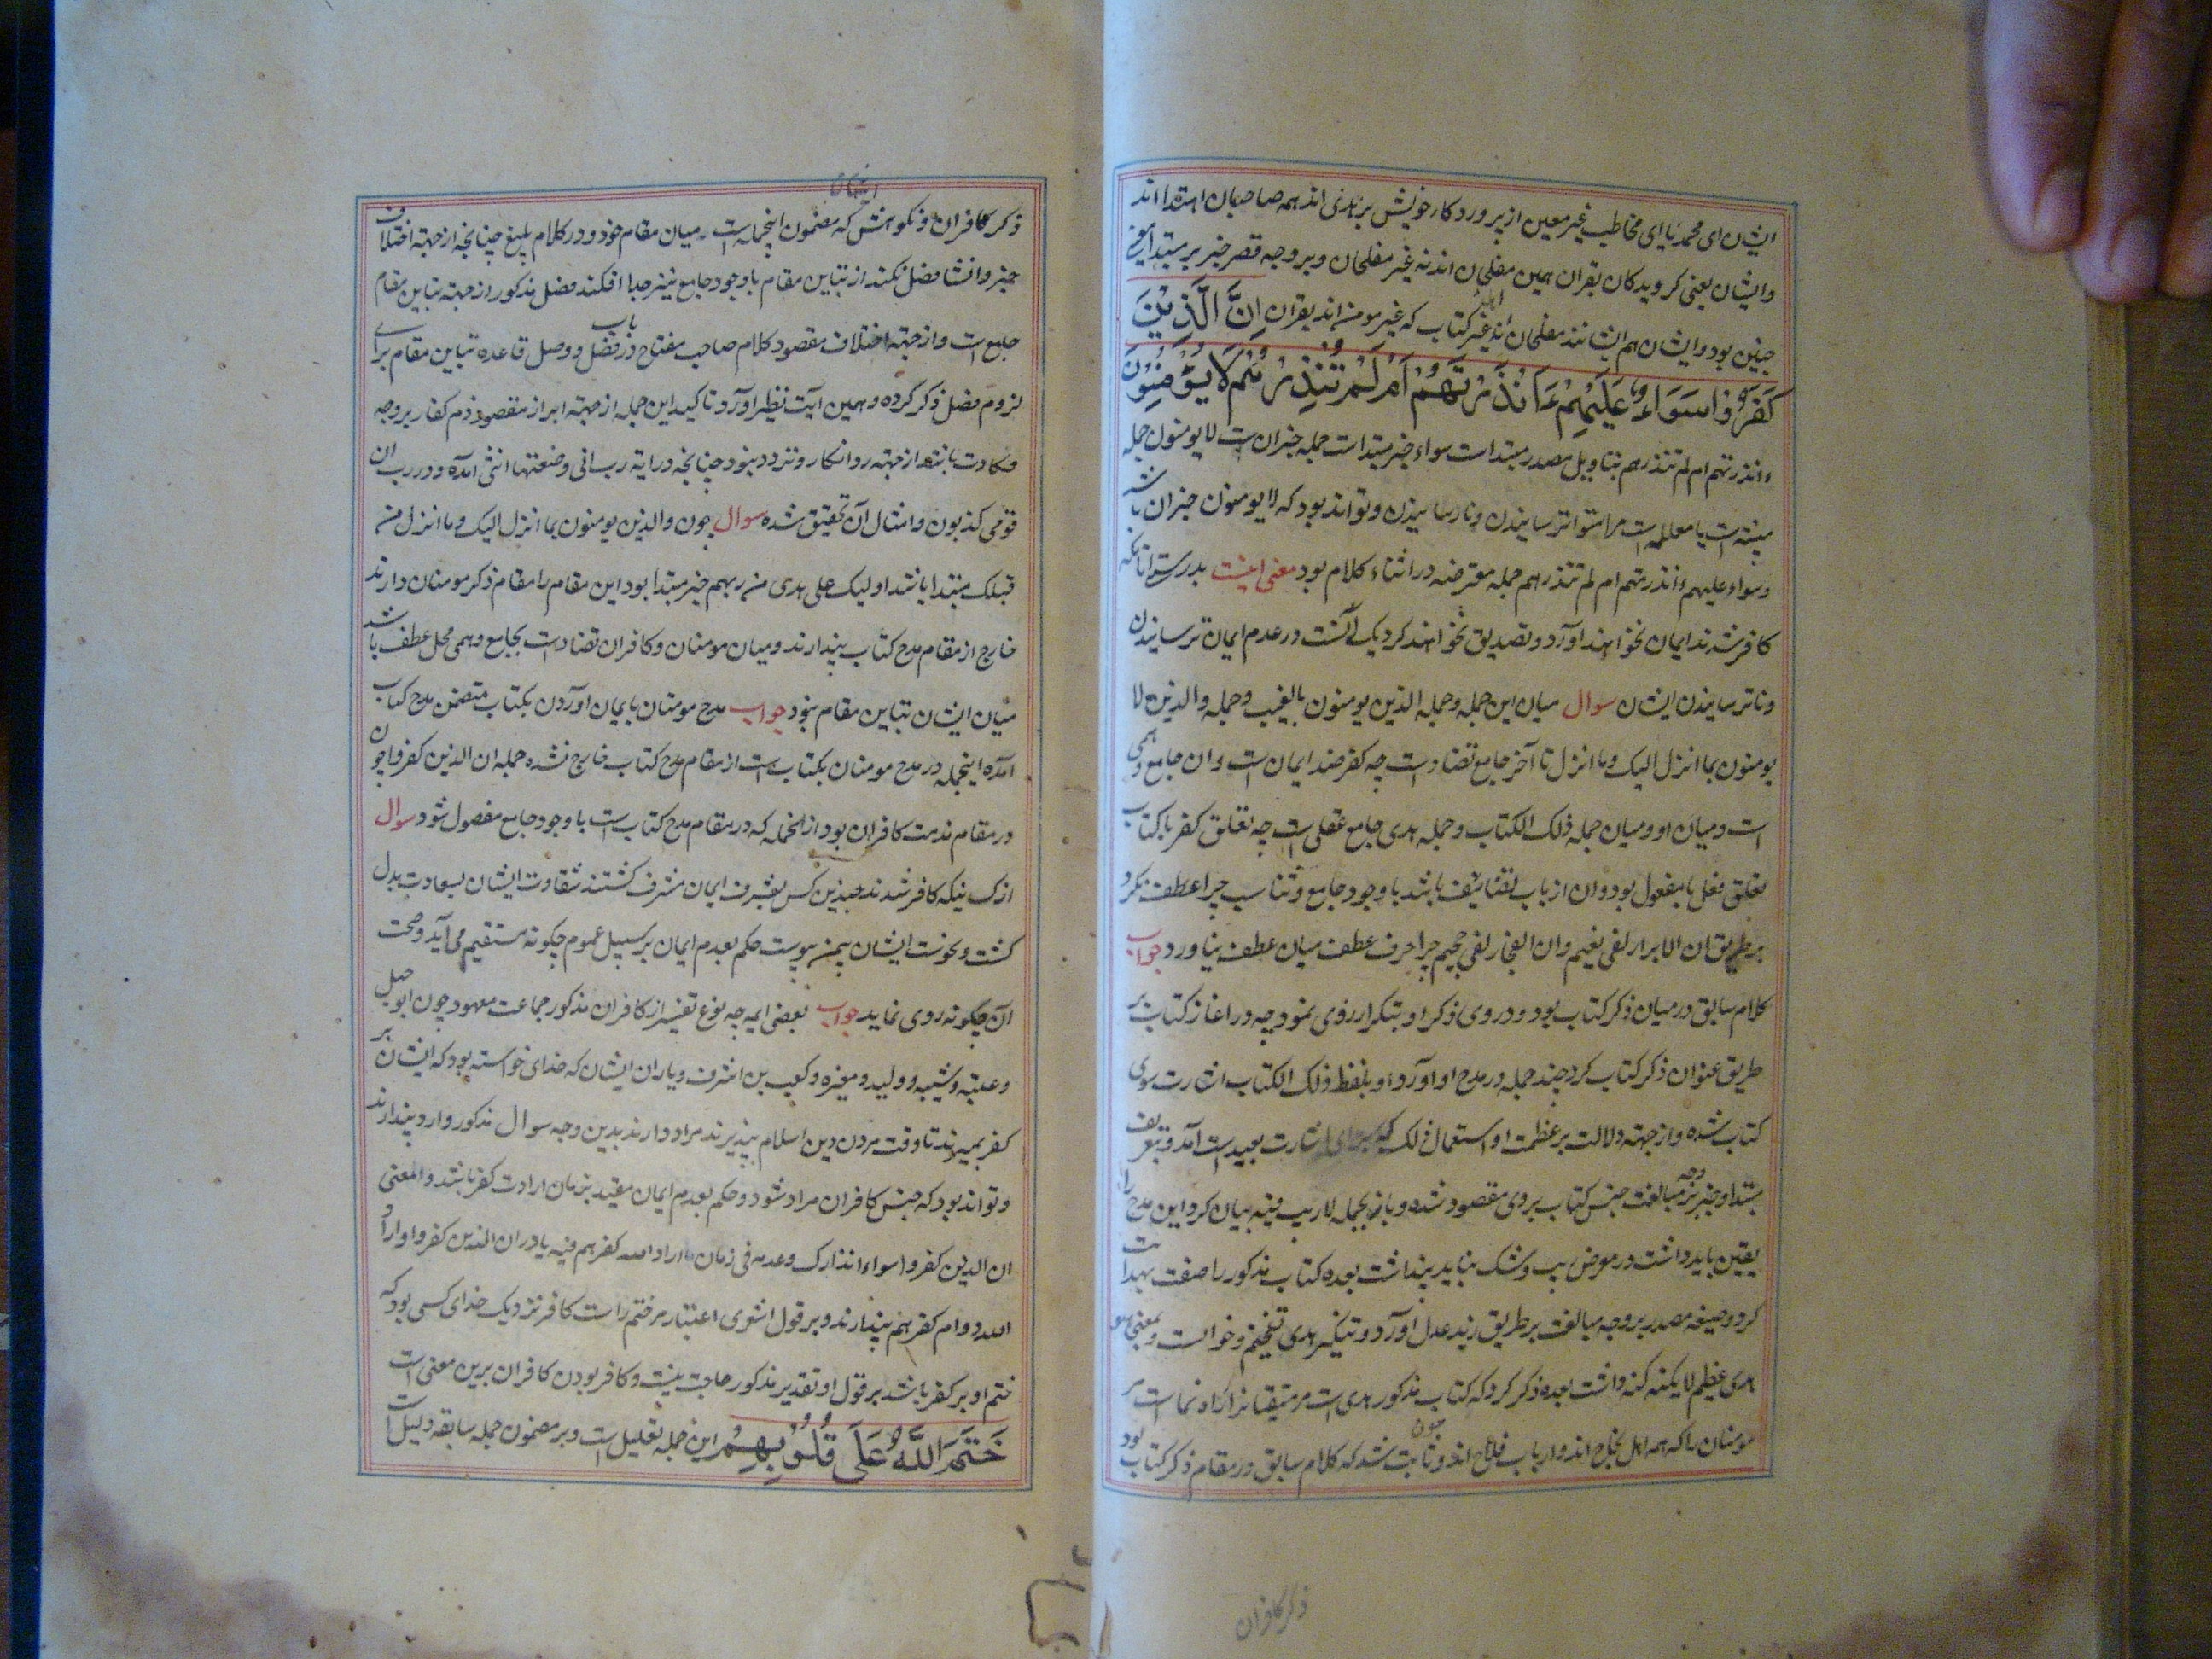 ایشان ای محمد یا ای مخاطب غیر معین از پروردکار خویش بر هدی اند همه صاحبان اهتدا اند
وایشان یعنی کرویدکان بقران همین مفلحان اند نه غیر مفلحان وبر وجه قصر خبر بر مبتدا
چنین بود وایشان هم ایشانند مفلحان اند غیر اهل کتاب که غیر مومن اند بقران اِنَّ الَّذِیْنَ
کَفَرُوْا سَوَاءٌ عَلَیْهِمْ ءَاَنْذَرْتَهُمْ اَمْ لَمْ تُنْذِرْهُمْ لَا یُؤْمِنُوْنَ
ءانذرتهم ام لم تنذرهم بتاویل مصدر مبتداست سواء خبر مبتداست جمله خبر ان ست لا یومنون جمله
مبینه است یا معلله است مر استوا ترسانیدن وناترسانیدن وتواند بود که لا یومنون خبر ان باشد
وسواء علیهم ءانذرتهم ام لم تنذرهم جمله معترضه در اثناء کلام بود معنی اینست بدرستی انانکه
کافر شدند ایمان نخواهند اورد وتصدیق نخواهند کرد یکسانست در عدم ایمان ترسانیدن
وناترسانیدن ایشان سوال میان این جمله وجمله الذین یومنون بالغیب وجمله والذین لا
یومنون بما انزل الیک وما انزل تا آخر جامع تضاد است چه کفر ضد ایمان است وان جامع وهمی
است ومیان او ومیان جمله ذلک الکتاب وجمله هدی جامع عقلی است چه تعلق کفر با کتاب
تعلق فعل با مفعول بود وان از باب تضایف باشد با وجود جامع وتناسب چرا عطف نکرد
بر طریق ان الابرار لفی نعیم وان الفجار لفی جحیم چرا حرف عطف میان عطف نیاورد جواب
کلام سابق در میان ذکر کتاب بود ودروی ذکر او بتکرار روی نمود چه در اغاز کتاب بر
طریق عنوان ذکر کتاب کرد چند جمله در مدح او آورد او بلفظ ذلک الکتاب اشارت سوی
کتاب شده واز جهته دلالت بر عظمت او استعمال ذلک که برای اشارت بعید است آمد وتعریف
مبتدا وخبر بر وجه مبالغت جنس کتاب بر وی مقصود شده وباز بجمله لاریب فیه بیان کرد این مدح را
یقین باید داشت در موضع ریب وشک نباید پنداشت بعده کتاب مذکور را صفت بهدایت
کرد وصیغه مصدر بر وجه مبالغت بر طریق زید عدل آورد وتنکیر هدی تفخیم خواست وبمعنی هو
هدی عظیم لا یکتنه کنهه داشت بعده ذکر کرد که کتاب مذکور هدی است مر متقیان را راه نماست مر
مومنان را که همه اهل نجاح اند وارباب فلاح اند چون ثابت شد که کلام سابق در مقام ذکر کتاب بود
ذکر کافران
ایشان
ذکر کافران ونکوهش که مضمون اینجمله است میان مقام خود ودر کلام بلیغ چنانچه از جهته اختلاف
خبر وانشا فصل نکند از تباین مقام با وجود جامع نیز جدا افکند فصل مذکور از جهته تباین مقام
جامع است واز جهته اختلاف مقصود کلام صاحب مفتاح در باب فصل ووصل قاعده تباین مقام برای
لزوم فصل ذکر کرده وهمین آیت نظیر اورد تاکید این جمله از جهته ابراز مقصود ذم کفار بر وجه
باشد از جهته رد انکار وتردد نبود چنانچه در ایة رب انی وضعتها انثی آمده ودر رب ان
قومی کذبون وامثال آن تحقیق شده سوال چون والذین یومنون بما انزل الیک وما انزل من
قبلک مبتدا باشد اولیک علی هدی من ربهم خبر مبتدا بود این مقام را مقام ذکر مومنان دارند
خارج از مقام مدح کتاب پندارند ومیان مومنان وکافران تضاد است بجامع وهمی محل عطف باشد
میان ایشان تباین مقام نبود جواب مدح مومنان بایمان آوردن بکتاب متضمن مدح کتاب
آمده اینجمله در مدح مومنان بکتاب است از مقام مدح کتاب خارج نشده جمله ان الذین کفروا چون
در مقام مذمت کافران بود از انجمله که در مقام مدح کتاب است با وجود جامع مفصول شود سوال
از کسانیکه کافر شدند چندین کس بشرف ایمان مشرف کشتند شقاوت ایشان بسعادت بدل
کشت ونحوست ایشان بیمن پیوست حکم بعدم ایمان بر سبیل عموم چکونه مستقیم می آید وصحت
آن چکونه روی نماید جواب بعضی ایمه چه نوع تفسیر از کافران مذکور جماعت معهود چون ابو جهل
وعتبه وشیبه وولید ومغیره وکعب بن اشرف ویاران ایشان که خدای خواسته بود که ایشان بر
کفر بمیرند تا وقت مردن دین اسلام نپذیرند مراد دارند بدین وجه سوال مذکور وارد پندارند
وتواند بود که جنس کافران مراد شود وحکم بعدم ایمان مقید بزمان ارادت کفر باشد والمعنی
ان الذین کفروا سواء انذارک وعدمه فی زمان اراد الله کفرهم فیه یا در ان الذین کفروا واراد
الله دوام کفرهم پندارند وبر قول اشعری اعتبار مر ختم راست کافر نزدیک خدای کسی بود که
ختم او بر کفر باشد بر قول او تقدیر مذکور حاجت نیست وکافر بودن کافران برین معنی است
خَتَمَ اللّٰهُ عَلٰی قُلُوْبِهِمْ این جمله تعلیل است وبر مضمون جمله سابقه دلیل است